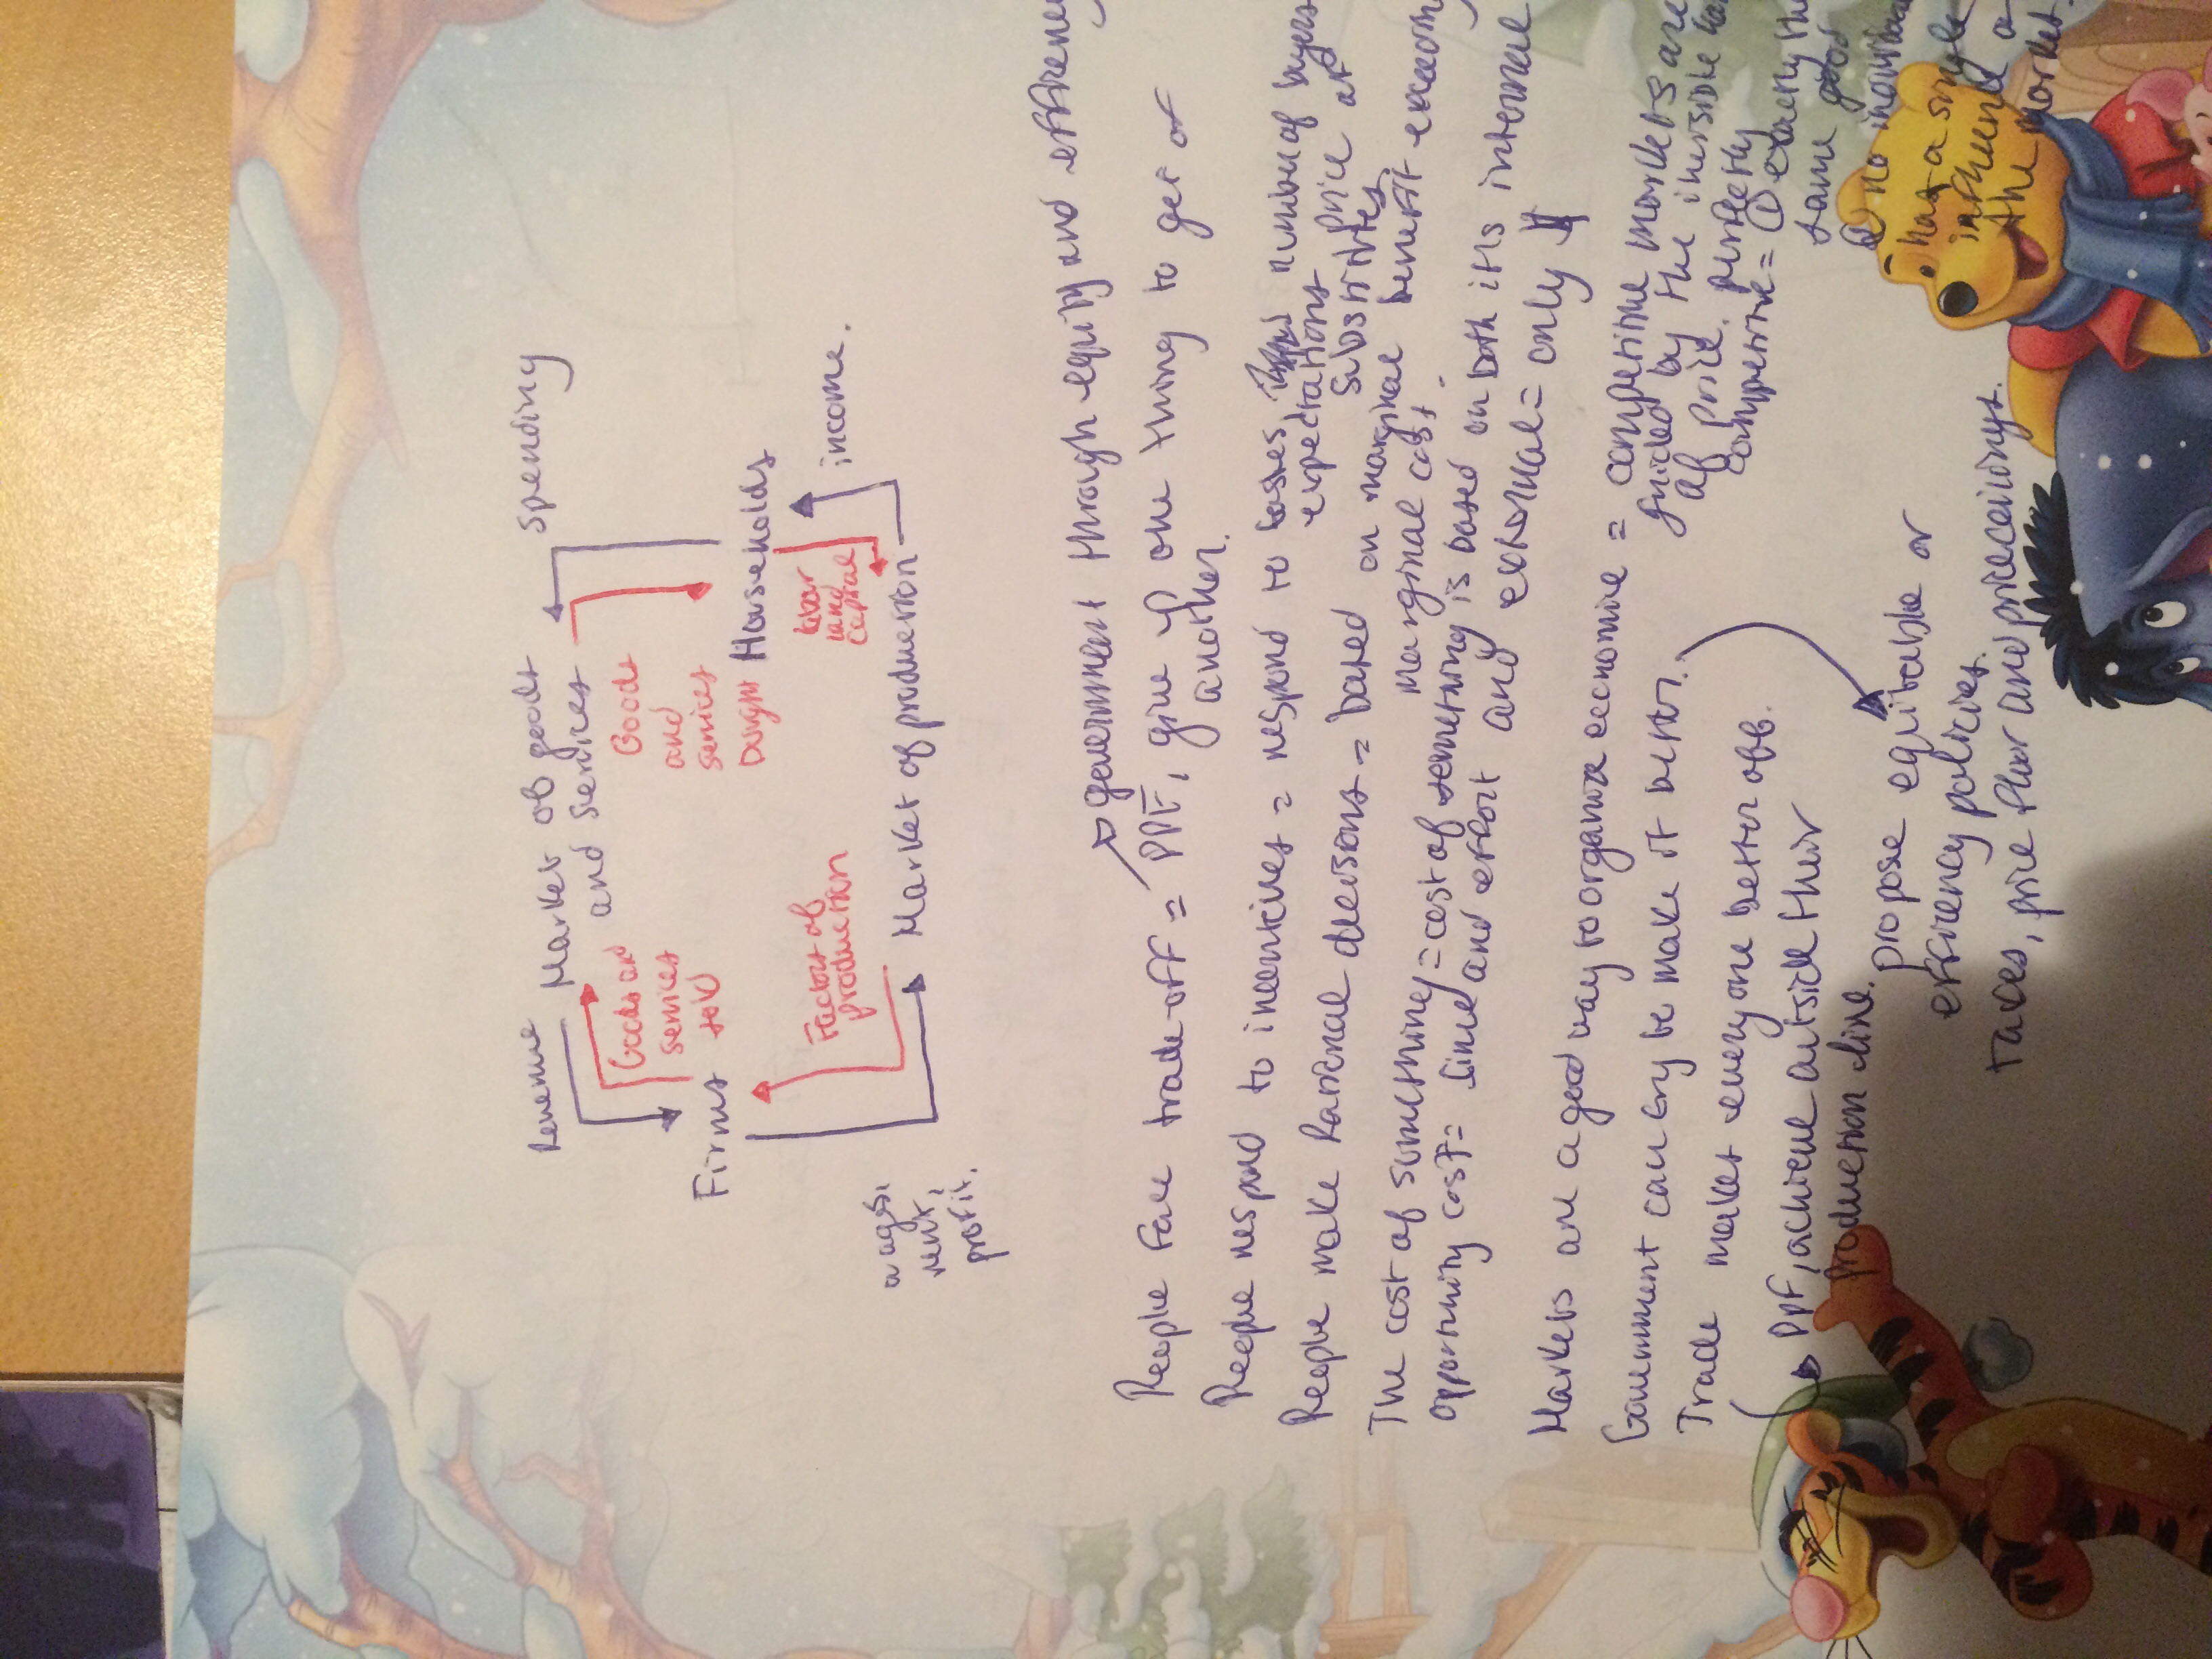 Revenue
Market of goods
and services
spending
Goods and
services
sold
Goods
and
services
bought
Firms
Households
Factors of
production
labor
land
capital
income.
wages,
rent,
profit.
Market of production
government through equity and efficiency
People face trade-off = PPF, give up one thing to get
another.
People respond to incentives = respond to number of buyers
expectations price of
substitutes
People make Rational decisions = based on marginal benefit
marginal cost.
The cost of something = cost of something is based on both its internal
opportunity cost = time and effort and external = only
Markets are a good way to organize economic = competitive markets are
guided by the invisible
of price. perfectly
competitive = ① exactly the
same good
② no
has a single
influence
the market.
Government can try be make it better.
Trade makes everyone better off.
PPF, achieve outside their
production line.
propose equitable or
efficiency policies.
Taxes, price floor and price ceilings.